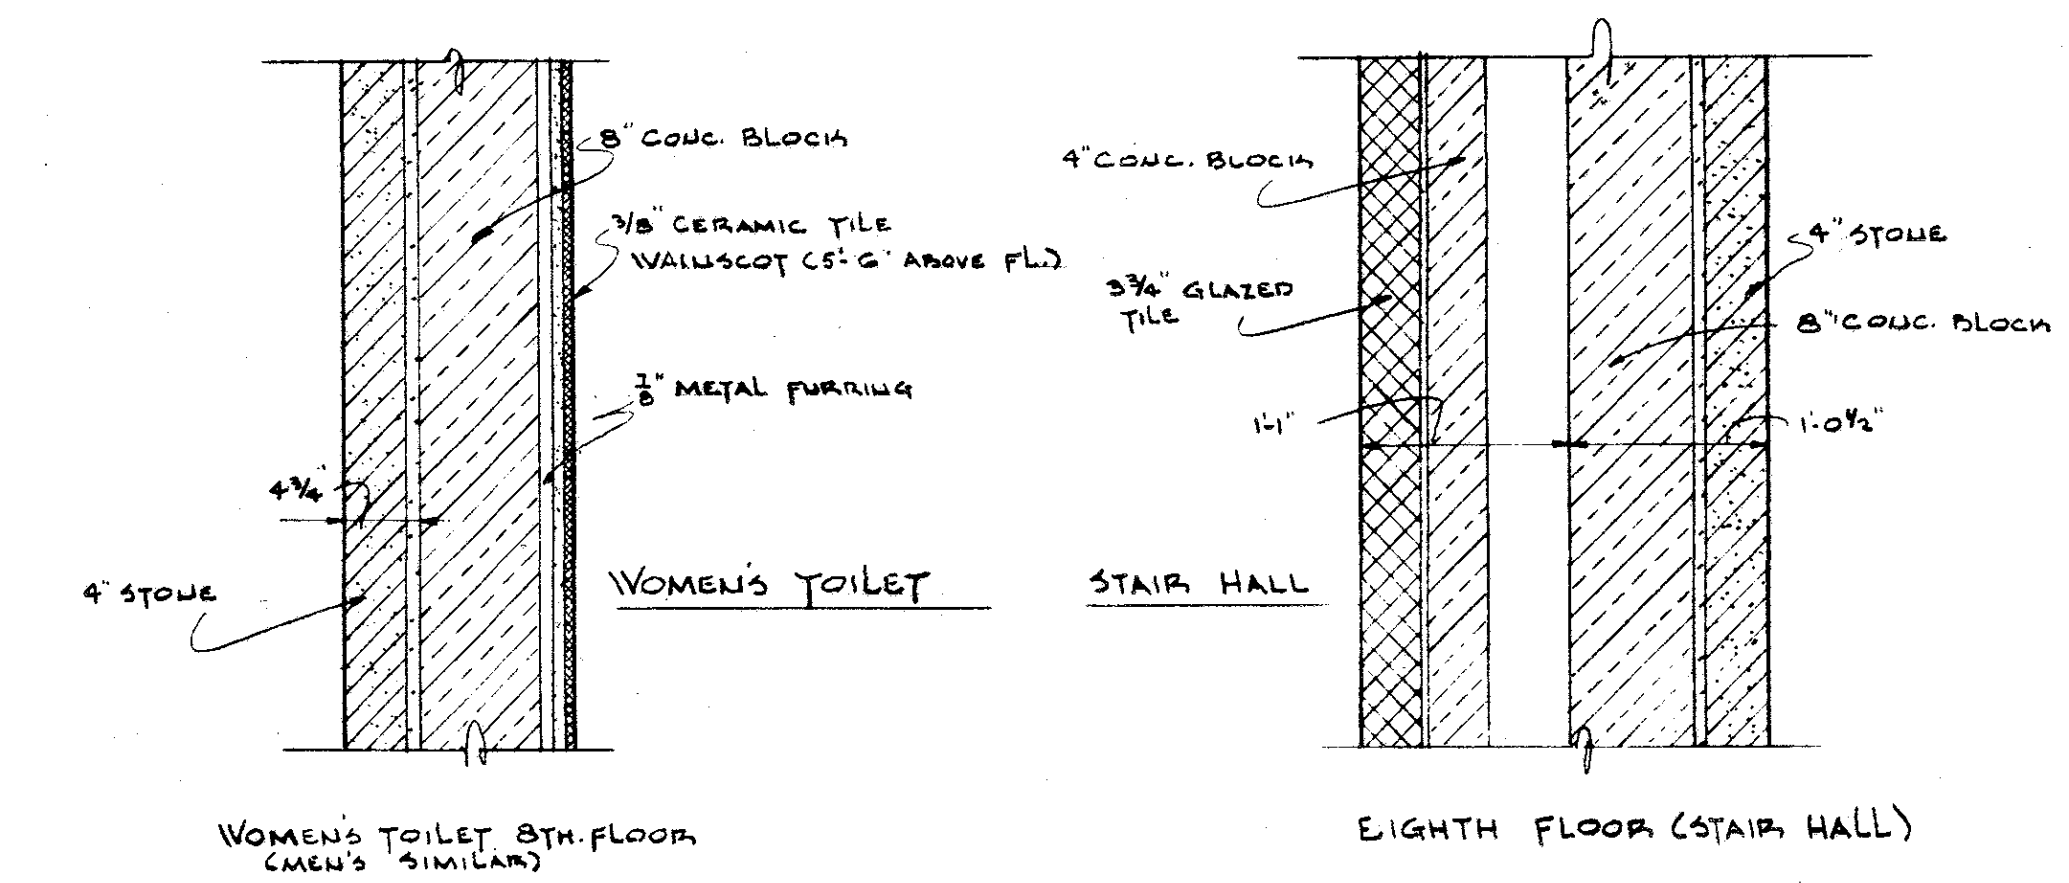 8" CONC. BLOCK
3/8" CERAMIC TILE
WAINSCOT (5'-6" ABOVE FL.)
7/8" METAL FURRING
4 3/4"
4" STONE
WOMEN'S TOILET
WOMEN'S TOILET 8TH. FLOOR
(MEN'S SIMILAR)
4" CONC. BLOCK
3 3/4" GLAZED
TILE
1'-1"
STAIR HALL
4" STONE
8" CONC. BLOCK
1'-0 1/2"
EIGHTH FLOOR (STAIR HALL)